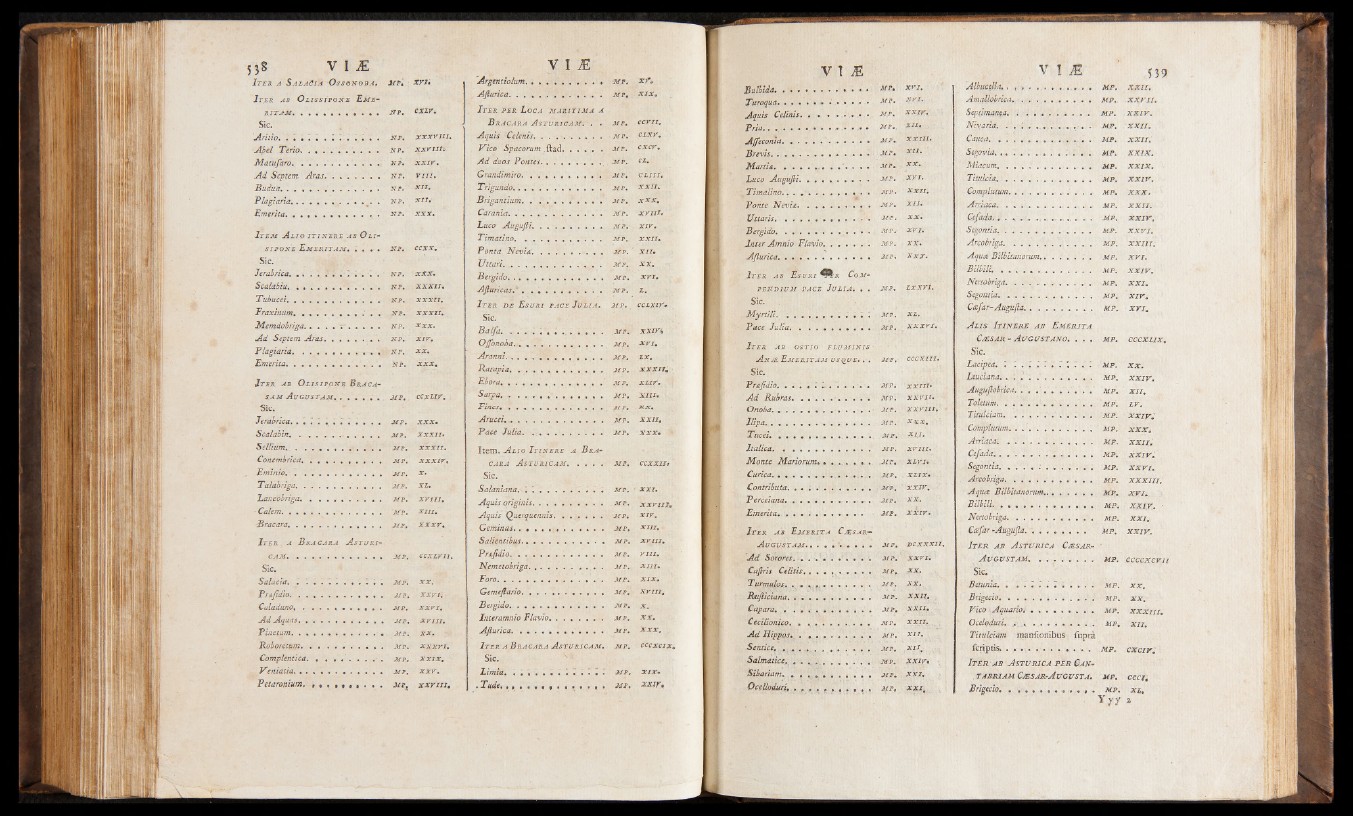 538 VIÆ
ITER A SALACIA OSSONOBA. MP. XVI.
ITER AB OLISSIPONE EME-
RITAM. MP. CXLV.
Sic.
Aritio. MP. XXXVIII.
Abel Terio. MP. XXVIII.
Matusaro. MP. XXIV.
Ad Septem Aras. MP. VIII.
Budua. MP. XII.
Plagiaria. MP. XII.
Emerita. MP. XXX.
ITEM ALIO ITINERE AB OLI-
SIPONE EMERITAM. MP. CCXX.
Sic.
Jerabrica. MP. XXX.
Scalabiu. MP. XXXII.
Tubucci. MP. XXXII.
Fraxinum. MP. XXXII.
Memdobriga. MP. XXX.
Ad Septem Aras. MP. XIV.
Plagiaria. MP. XX.
Emerita. MP. XXX.
ITER AB OLISIPONE BRACA-
RAM AUGUSTAM. MP. CCXLIV.
Sic.
Jerabrica. MP. XXX.
Scalabin. MP. XXXII.
Sellium. MP. XXXII.
Conembrica. MP. XXXIV.
Eminio. MP. X.
Talabriga. MP. XL.
Lancobriga. MP. XVIII.
Calem. MP. XIII.
Bracara. MP. XXXV.
ITER A BRACARA ASTURI-
CAM. MP. CCXLVII.
Sic.
Salacia. MP. XX.
Præsidio. MP. XXVI.
Caladuno. MP. XXVI.
Ad Aquas. MP. XVIII.
Pinetum. MP. XX.
Roboretum. MP. XXXVI.
Complentica. MP. XXIX.
Veniatia. MP. XXV.
Petavonium. MP. XXVIII.
VIÆ
Argentiolum. MP. XV.
Asturica. MP. XIX.
ITER PER LOCA MARITIMA A
BRACARA ASTURICAM. MP. CCVII.
Aquis Celenis. MP. CLXV.
Vico Spacorum stad. MP. CXCV.
Ad duos Pontes. MP. CL.
Grandimiro. MP. CLIII.
Trigundo. MP. XXII.
Brigantium. MP. XXX.
Caranio. MP. XVIII.
Luco Augusti. MP. XIV.
Timatino. MP. XXII.
Ponta Neviæ. MP. XII.
Uttari. MP. XX.
Bergido. MP. XVI.
Asturicas. MP. L.
ITER DE ESURI PACE JULIA. MP. CCLXIV.
Sic.
Balsa. MP. XXIV.
Ossonoba. MP. XVI.
Aranni. MP. LX.
Rarapia. MP. XXXII.
Ebora. MP. XLIV.
Sarpa. MP. XIII.
Fines. MP. XX.
Arucci. MP. XXII.
Pace Julia. MP. XXX.
Item. ALIO ITINERE A BRA-
CARA ASTURICAM. MP. CCXXII.
Sic.
Salaniana. MP. XXI.
Aquis originis. MP. XXVIII.
Aquis Querquennis. MP. XIV.
Geminus. MP. XIII.
Salientibus. MP. XVIII.
Præsidio. MP. VIII.
Nemetobriga. MP. XIII.
Foro. MP. XIX.
Gemestario. MP. XVIII.
Bergido. MP. X.
Interamnio Flavio. MP. XX.
Asturica. MP. XXX.
ITER A BRACARA ASTURICAM. MP. CCCXCIX.
Sic.
Limia. MP. XIX.
Tude. MP. XXIV.
VIÆ
Bulbida. MP. XVI.
Turoqua. MP. XVI.
Aquis Celinis. MP. XXIV.
Pria. MP. XII.
Asseconia. MP. XXIII.
Brevis. MP. XII.
Martiæ. MP. XX.
Luco Augusti. MP. XVI.
Timalino. MP. XXII.
Ponte Neviæ. MP. XII.
Uttaris. MP. XX.
Bergido. MP. XVI.
Inter Amnio Flavio. MP. XX.
Asturica. MP. XXX.
ITER AB ESURI COM-
PENDIUM PACE JULIA. MP. LXXVI.
Sic.
Myrtili. MP. XL.
Pace Julia. MP. XXXVI.
ITER AB OSTIO FLUMINIS
ANÆ EMERITAM USQUE. MP. CCCXIII.
Sic.
Præsidio. MP. XXIII.
Ad Rubras. MP. XXVII.
Onoba. MP. XXVIII.
Ilipa. MP. XXX.
Tucci. MP. XII.
Italica. MP. XVIII.
Monte Mariorum. MP. XLVI.
Curica. MP. XLIX.
Contributa. MP. XXIV.
Perceiana. MP. XX.
Emerita. MP. XXIV.
ITER AB EMERITA CÆSAR-
AUGUSTAM. MP. DCXXXII.
Ad Sorores. MP. XXVI.
Castris Celitis. MP. XX.
Turmulos. MP. XX.
Rusticiana. MP. XXII.
Capara. MP. XXII.
Cecilionico. MP. XXII.
Ad Hippos. MP. XII.
Sentice. MP. XII.
Salmatice. MP. XXIV.
Sibariam. MP. XXI.
Ocelloduri. MP. XXI.
VIÆ 539
Albucella. MP. XXII.
Amallobrica. MP. XXVII.
Septimanca. MP. XXIV.
Nivaria. MP. XXII.
Cauca. MP. XXII.
Segovia. MP. XXIX.
Miacum. MP. XXIX.
Titulcia. MP. XXIV.
Complutum. MP. XXX.
Arriaca. MP. XXII.
Cesada. MP. XXIV.
Segontia. MP. XXVI.
Arcobriga. MP. XXIII.
Aquæ Bilbitanorum. MP. XVI.
Bilbili. MP. XXIV.
Nertobriga. MP. XXI.
Segontia. MP. XIV.
Cæsar-Augusta. MP. XVI.
ALIS ITINERE AB EMERITA
CÆSAR-AUGUSTANO. MP. CCCXLIX.
Sic.
Lacipea. MP. XX.
Leuciana. MP. XXIV.
Augustobrica. MP. XII.
Toletum. MP. LV.
Titulciam. MP. XXIV.
Complutum. MP. XXX.
Arriaca. MP. XXII.
Cesada. MP. XXIV.
Segontia. MP. XXVI.
Arcobriga. MP. XXXIII.
Aquæ Bilbitanorum. MP. XVI.
Bilbili. MP. XXIV.
Nertobriga. MP. XXI.
Cæsar-Augusta. MP. XXIV.
ITER AB ASTURICA CÆSAR-
AUGUSTAM. MP. CCCCXCVII
Sic.
Betunia. MP. XX.
Brigecio. MP. XX.
Vico Aquario. MP. XXXIII.
Oceloduri. MP. XII.
Titulciam mansionibus suprà
scriptis. MP. CXCIV.
ITER AB ASTURICA PER CAN-
TABRIAM CÆSAR-AUGUSTA. MP. CCCI.
Brigecio. MP. XL.
Yyy 2